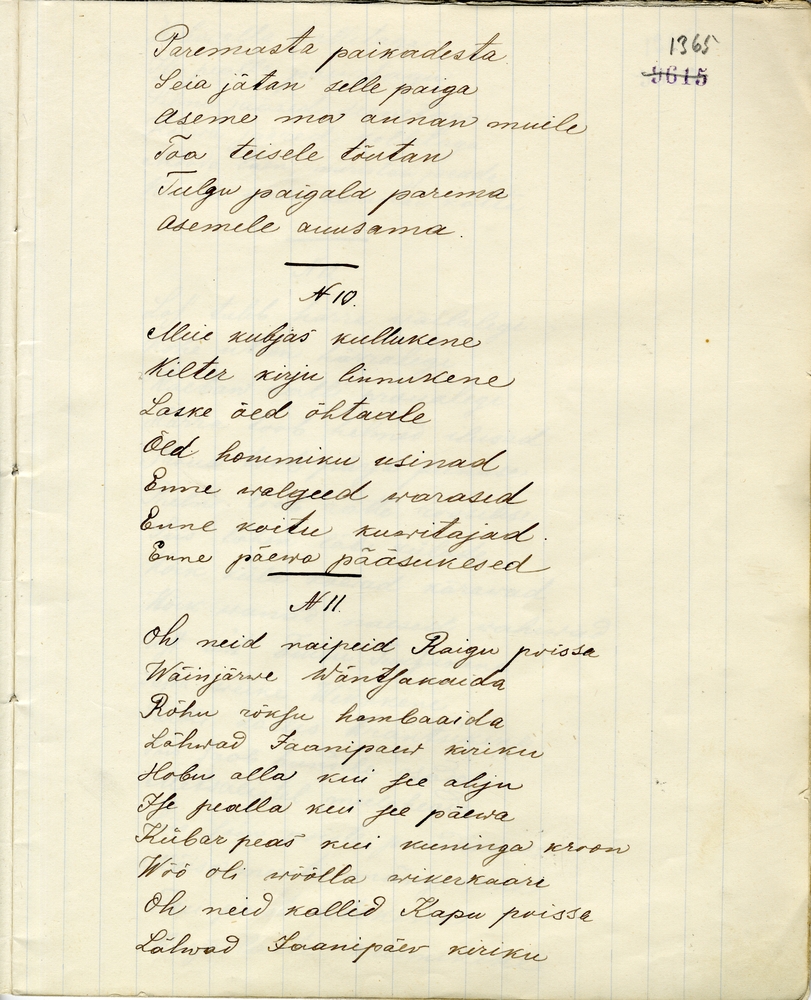 Paremasta paikadesta
1365
9615
Seia jätan selle paiga
Aseme ma annan muile
Toa teisele tõutan
Tulgu paigald parema
Asemele auusama.
N 10.
Meie kubjas kullukene
Kilter kirju linnukene
Laske õed õhtaale
Õed hommiku usinad
Enne walgeed warased
Enne koitu kuuritajad.
Enne päewa pääsukesed
N 11.
Oh neid naipeid Raigu poissa
Wäinjärwe Wäntsakaida
Rõhu rõksu hambaaida
Lähwad Jaanipaew kiriku
Hobu alla kui see ahju
Ise pealla kui see päewa
Kübar peas kui kuninga kroon
Wöö oli wöölla wikerkaare
Oh neid kallid Kapu poissa
Lähwad Jaanipäev kiriku